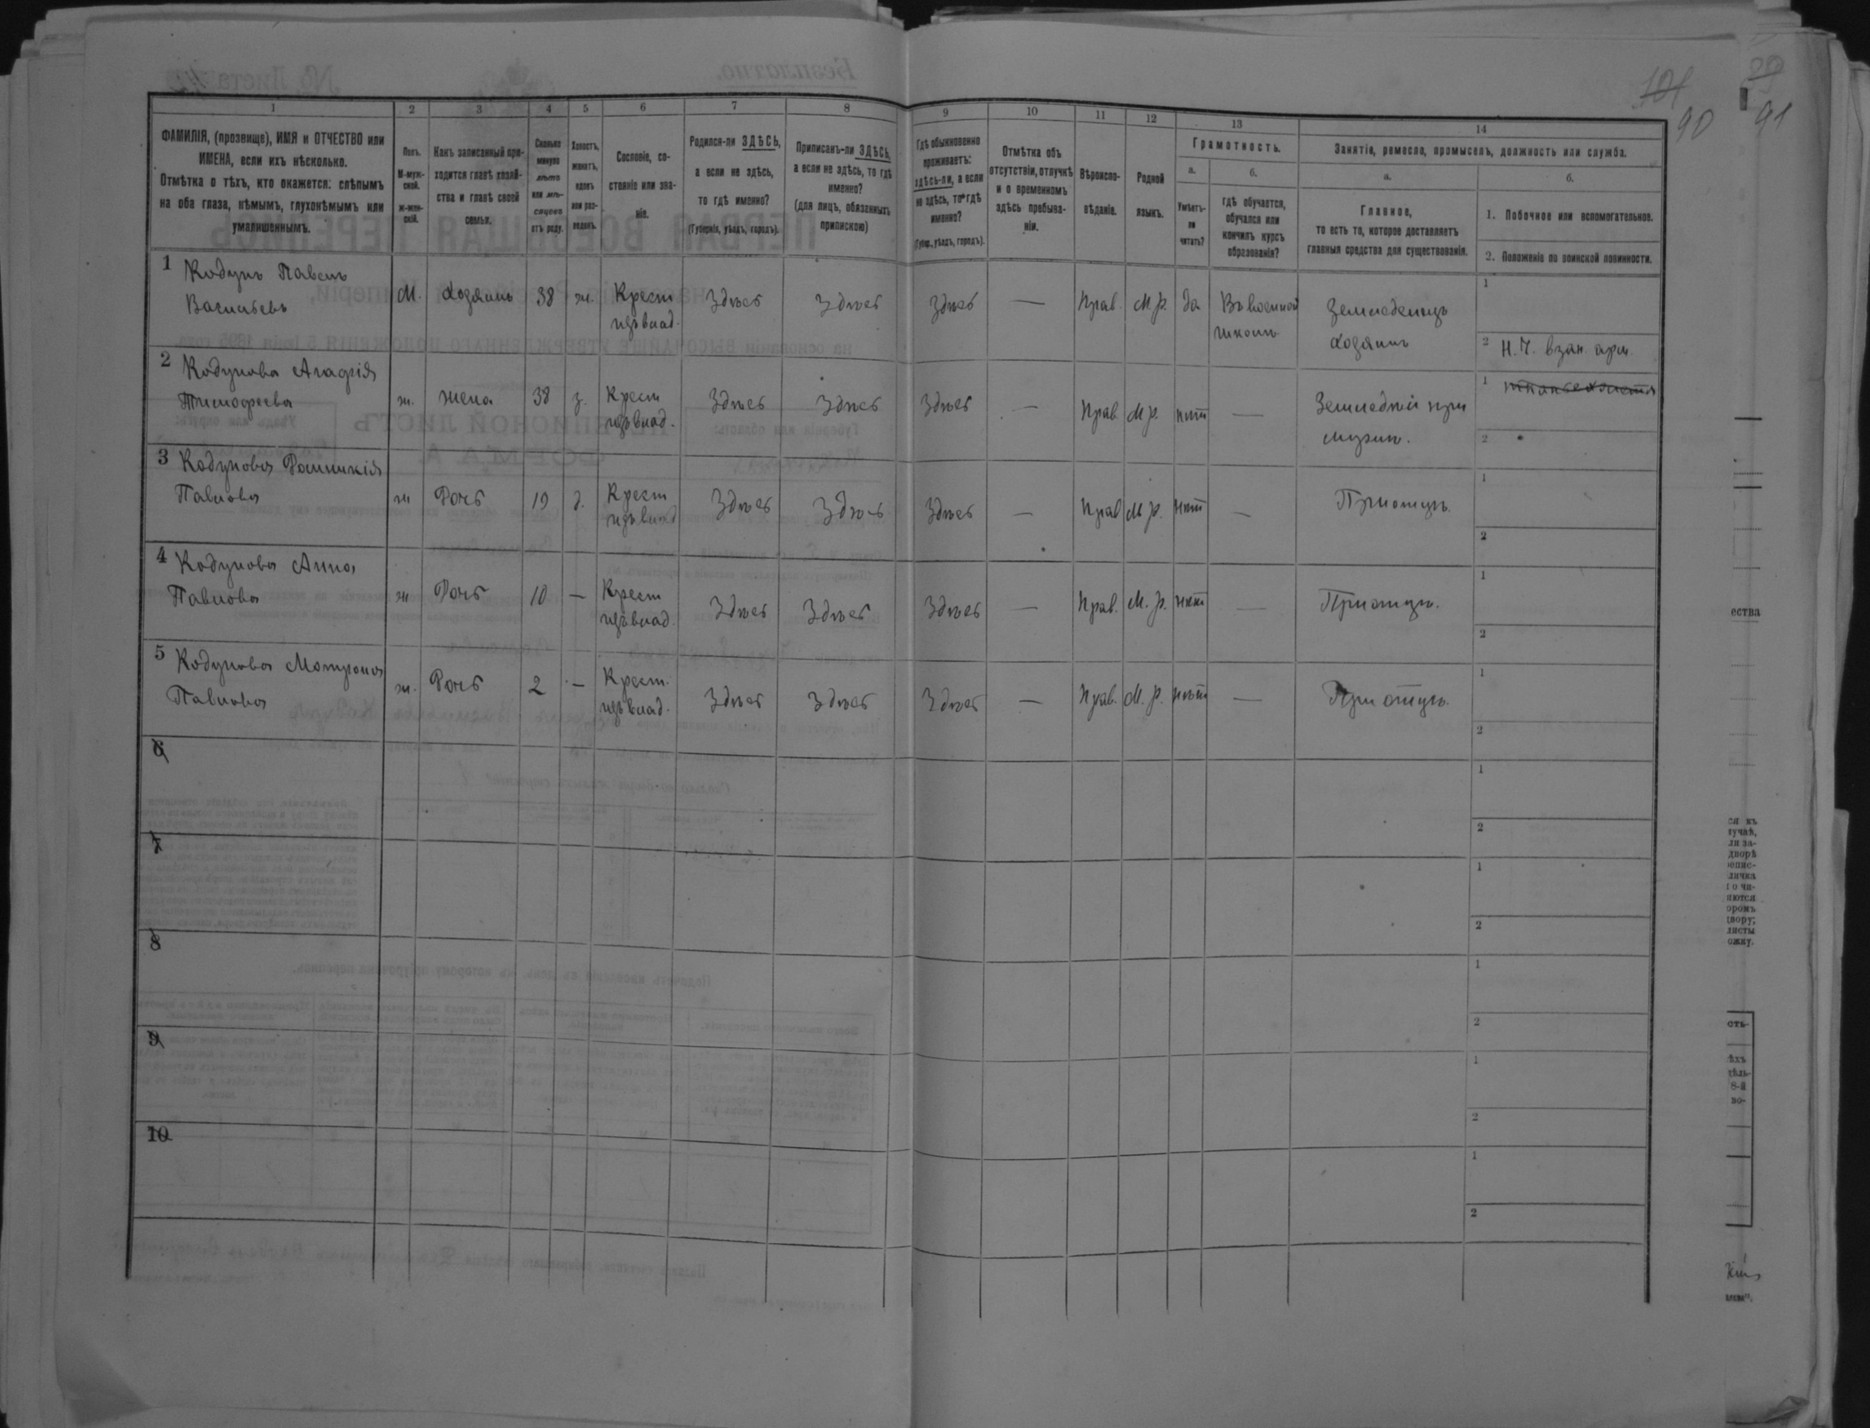 101
90
29
91
1
2
3
4
5
6
7
8
9
10
11
12
13
14
ФАМИЛІЯ, (прозвище), ИМЯ и ОТЧЕСТВО или
ИМЕНА, если ихъ нѣсколько.
Отмѣтка о тѣхъ, кто окажется: слѣпымъ
на оба глаза, нѣмымъ, глухонѣмымъ или
умалишеннымъ.
Полъ.
М-муж-
ской.
Ж-жен-
скій.
Какъ записанный при-
ходится главѣ хозяй-
ства и главѣ своей
семьи.
Сколько
минуло
лѣтъ
или мѣ-
сяцевъ
отъ роду.
Холостъ,
женатъ,
вдовъ
или раз-
веденъ.
Сословіе, со-
стояніе или зва-
ніе.
Родился-ли ЗДѢСЬ,
а если не здѣсь,
то гдѣ именно?
(Губернія, уѣздъ, городъ).
Приписанъ-ли ЗДѢСЬ,
а если не здѣсь, то гдѣ
именно?
(для лицъ, обязанныхъ
припискою)
Гдѣ обыкновенно
проживаетъ:
здѣсь-ли, а если
не здѣсь, то гдѣ
именно?
(Губер., уѣздъ, городъ).
Отмѣтка объ
отсутствіи, отлучкѣ
и о временномъ
здѣсь пребыва-
ніи.
Вѣроиспо-
вѣданіе.
Родной
языкъ.
Грамотность.
а.
Умѣетъ-
ли
читать?
б.
гдѣ обучается,
обучался или
кончилъ курсъ
образованія?
Занятіе, ремесло, промыселъ, должность или служба.
а.
Главное,
то есть то, которое доставляетъ
главныя средства для существованія.
б.
1. Побочное или вспомогательное.
2. Положеніе по воинской повинности.
1 Кодунъ Павелъ
Васильевъ
М. Хозяинъ 38 ж. Крест
изъ влад. Здѣсь Здѣсь Здѣсь — Прав. М.р. да Въ военной
школѣ Земледѣлецъ
хозяинъ
1
2 Н.Ч. взап. арм.
2 Кодунова Агафія
Тимофеева
ж. жена 38 з. Крест
изъ влад. Здѣсь Здѣсь Здѣсь — Прав М.р нѣт — Земледѣліе при
мужѣ.
1
2
3 Кодунова
Павлова
ж Дочь 19 д. Крест
изъ влад Здѣсь Здѣсь Здѣсь — Прав М.р. нѣт — При отцѣ.
1
2
4 Кодунова Анна
Павлова
ж Дочь 10 — Крест
изъ влад. Здѣсь Здѣсь Здѣсь — Прав. М.р. нѣт — При отцѣ.
1
2
5 Кодунова Мотрона
Павлова
ж. Дочь 2 — Крест.
изъ влад. Здѣсь Здѣсь Здѣсь — Прав. М.р. нѣтъ — При отцѣ.
1
2
6
1
2
7
1
2
8
1
2
9
1
2
10
1
2